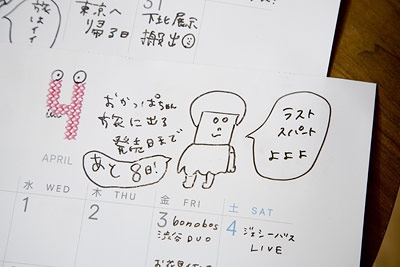 旅は
イイ
東京へ
帰る日
31
下北展示
搬出
4
APRIL
おかっぱちゃん
旅に出る
発売日まで
あと8日!
ラスト
スパート
よよよ
水 WED
木 THU
金 FRI
土 SAT
1
2
3 bonobos
渋谷DUO
4 ジェシーハリス
LIVE